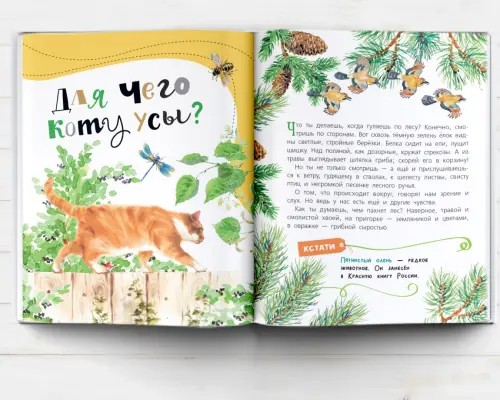 Для чего
коту усы?
Что ты делаешь, когда гуляешь по лесу? Конечно, смо-
тришь по сторонам. Вот сквозь тёмную зелень ёлок вид-
ны светлые, стройные берёзки. Белка сидит на ели, лущит
шишку. Над поляной, как дозорные, кружат стрекозы. А из
травы выглядывает шляпка гриба; скорей его в корзину!
Но ты не только смотришь — а ещё и прислушиваешь-
ся к ветру, гудящему в стволах, к шелесту листвы, свисту
птиц и негромкой песенке лесного ручья.
О том, что происходит вокруг, говорят нам зрение и
слух. Но ведь у нас есть ещё и другие чувства.
Как ты думаешь, чем пахнет лес? Наверное, травой и
смолистой хвоей, на пригорке — земляникой и цветами,
в овраге — грибной сыростью.
КСТАТИ
Пятнистый олень — редкое
животное. Он занесён
в Красную книгу России.